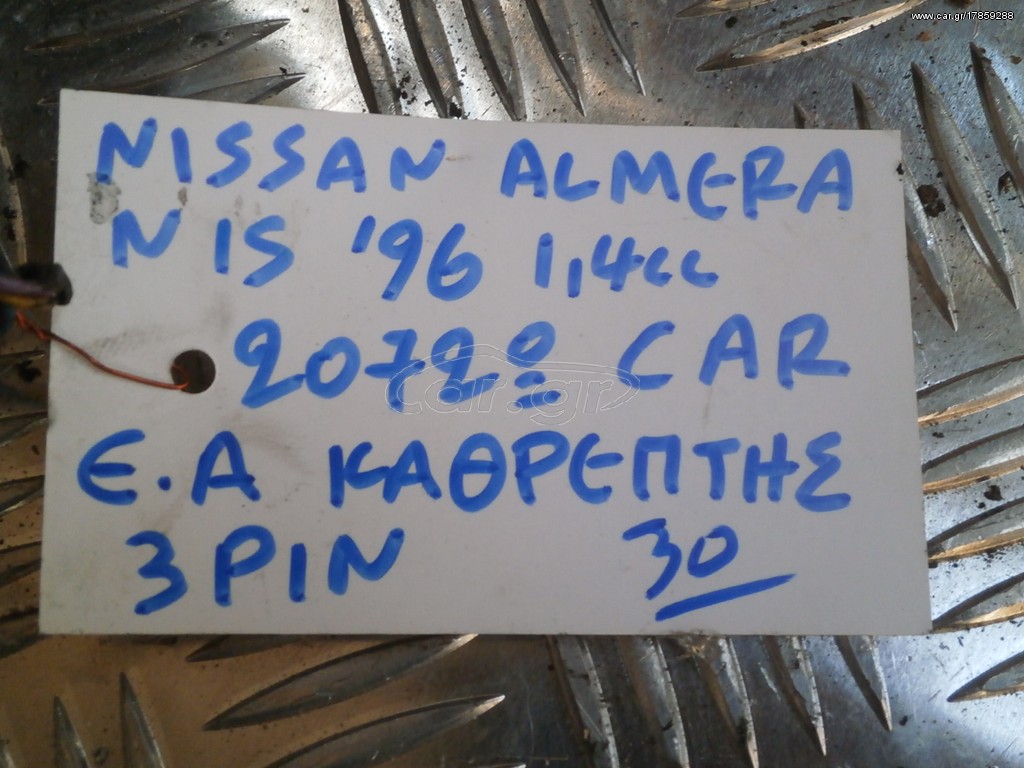 www.car.gr/17859288
NISSAN ALMERA
N15 '96 1,4cc
2072º CAR
car.gr
Ε.Α ΚΑΘΡΕΠΤΗΣ
3 PIN 30